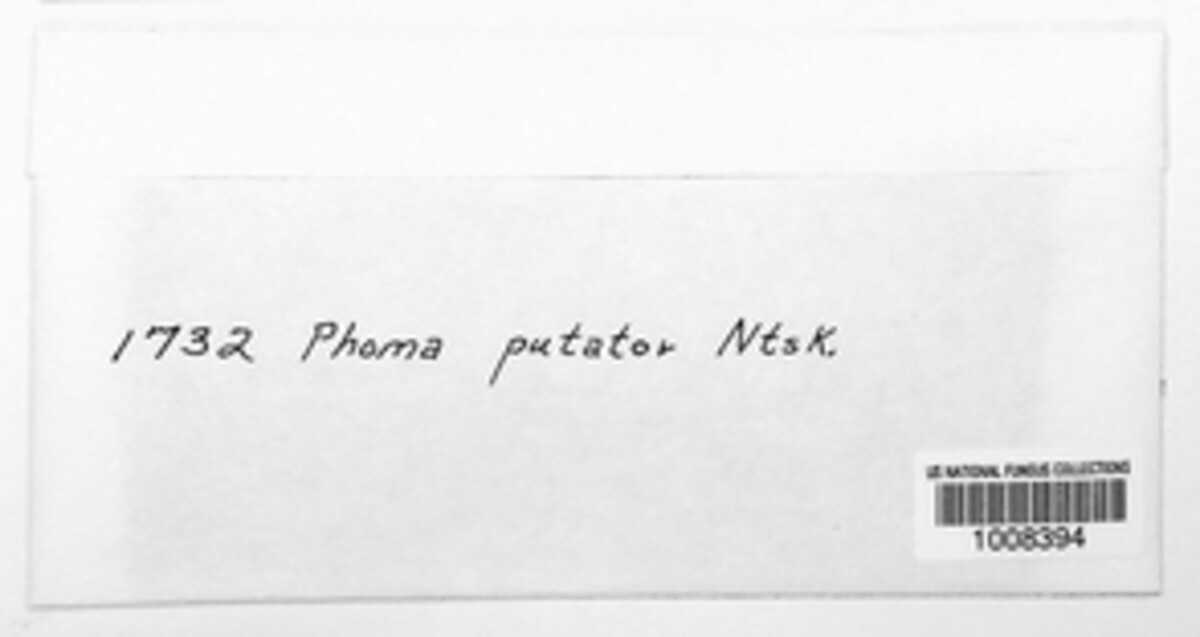 1732 Phoma putator Ntsk.
US NATIONAL FUNGUS COLLECTIONS
1008394